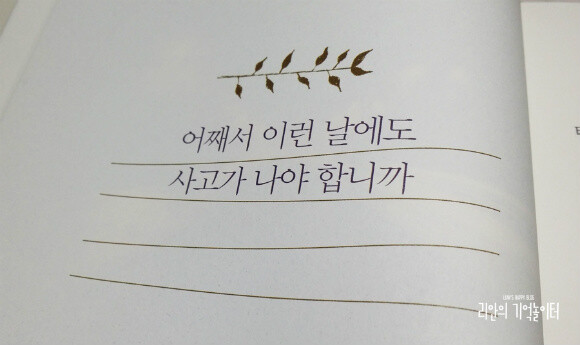 어째서 이런 날에도
사고가 나야 합니까
리안의 기억놀이터